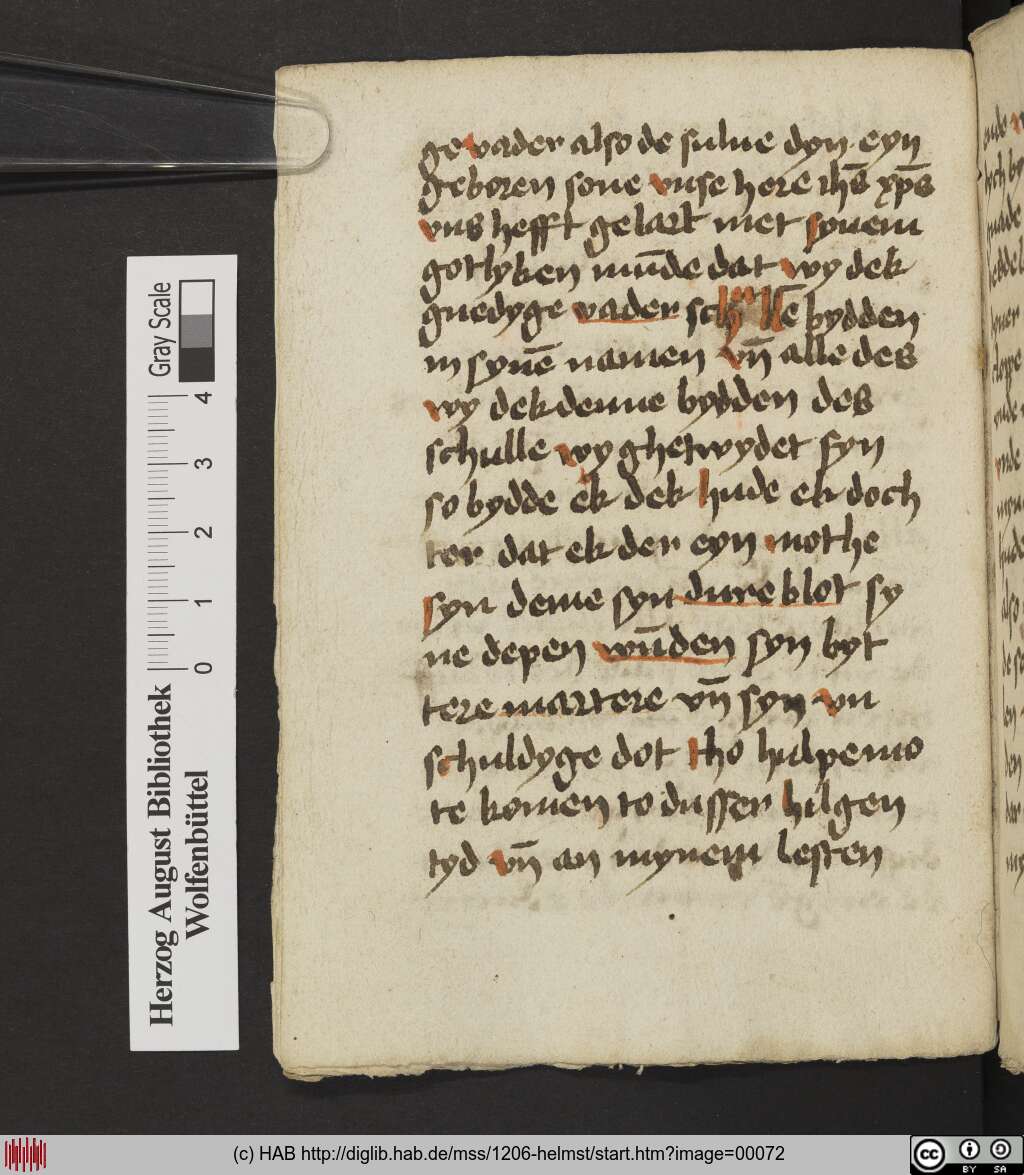 ge vader also de sulue dyn eyn
geboren sone vnse here ihs̄ xp̄s
vns hefft gelart met synem
gotlyken mūde dat wy dek
gnedyge vader schullē bydden
in synē namen vn̄ alle des
wy dek denne bydden des
schulle wy ghetwydet syn
so bydde ek dek hude ek doch
ter dat ek der eyn mothe
syn deme syn dure blot sy
ne depen wūden syn byt
tere martere vn̄ syn vn
schuldyge dot tho hulpe mo
te komen to dusser hilgen
tyd vn̄ an mynem lesten
Gray Scale
0 1 2 3 4
Herzog August Bibliothek
Wolfenbüttel
(c) HAB http://diglib.hab.de/mss/1206-helmst/start.htm?image=00072
cc BY SA